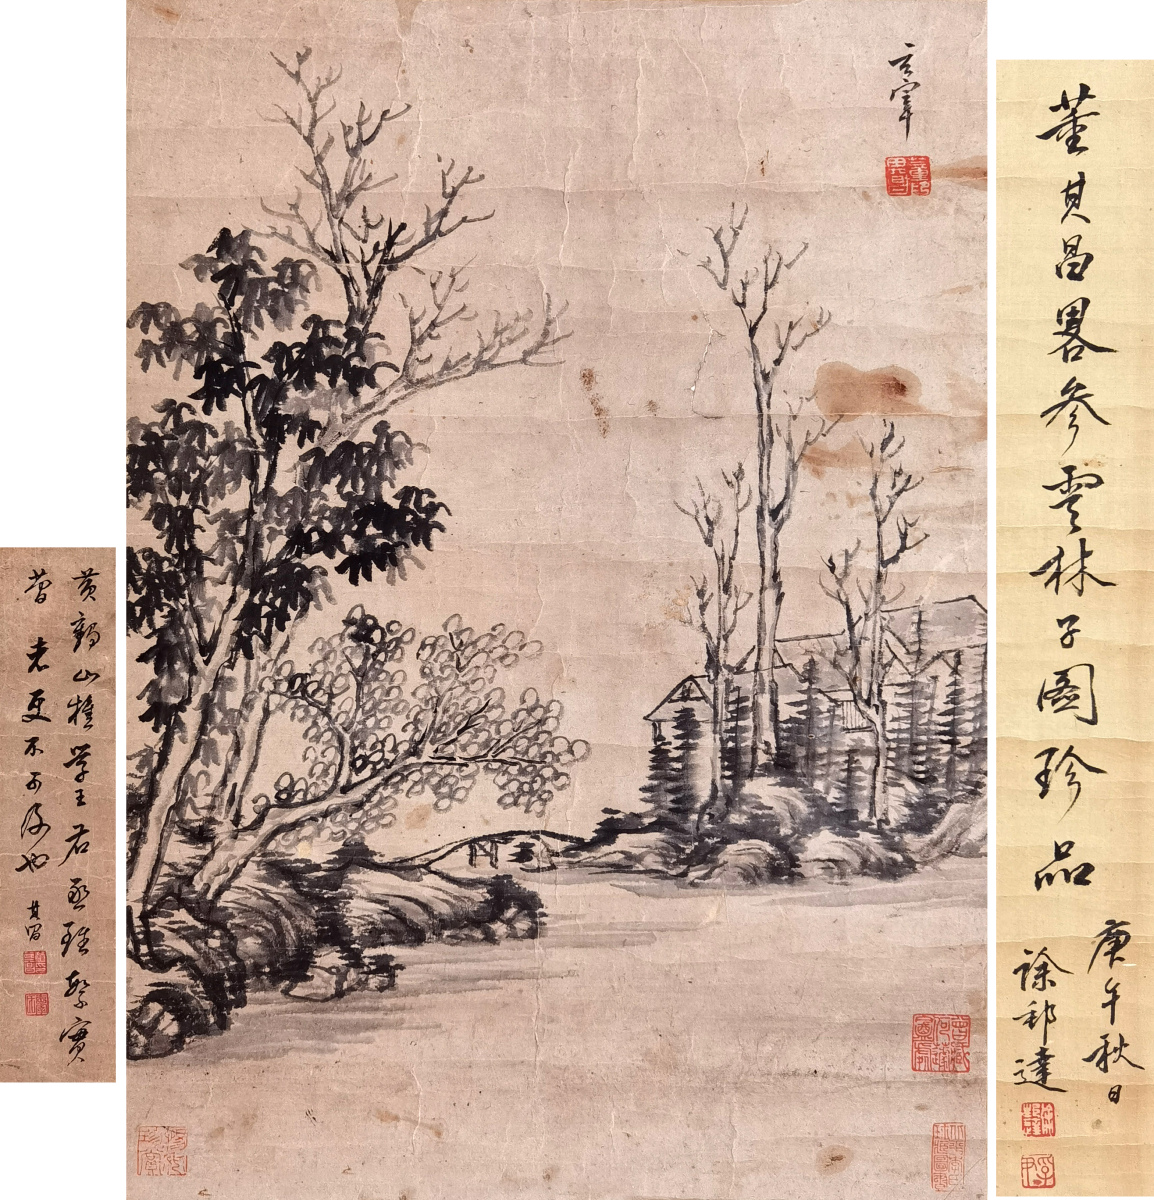 玄宰
董其昌畧參雲林子圖珍品
庚午秋日
徐邦達
黃鶴山樵學王右丞雖繁實
簡 老更不可及也
其昌